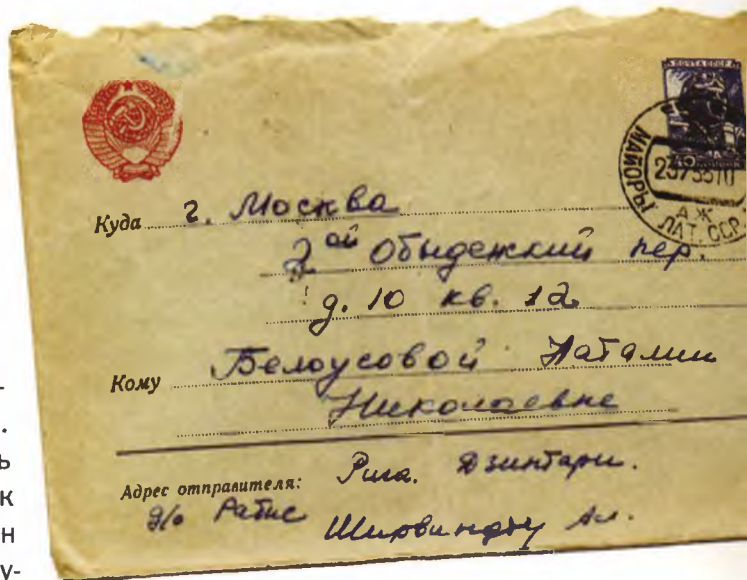 ПОЧТА СССР
МАЙОРЫ
АЖ
ЛАТ. ССР
Куда г. Москва
2ой Обыденский пер.
д. 10 кв. 12
Кому Белоусовой Наталии
Николаевне
Адрес отправителя: Рига. Дзинтари.
д/о
Ширвиндту Ал.
-
.
ь
к
н
у-